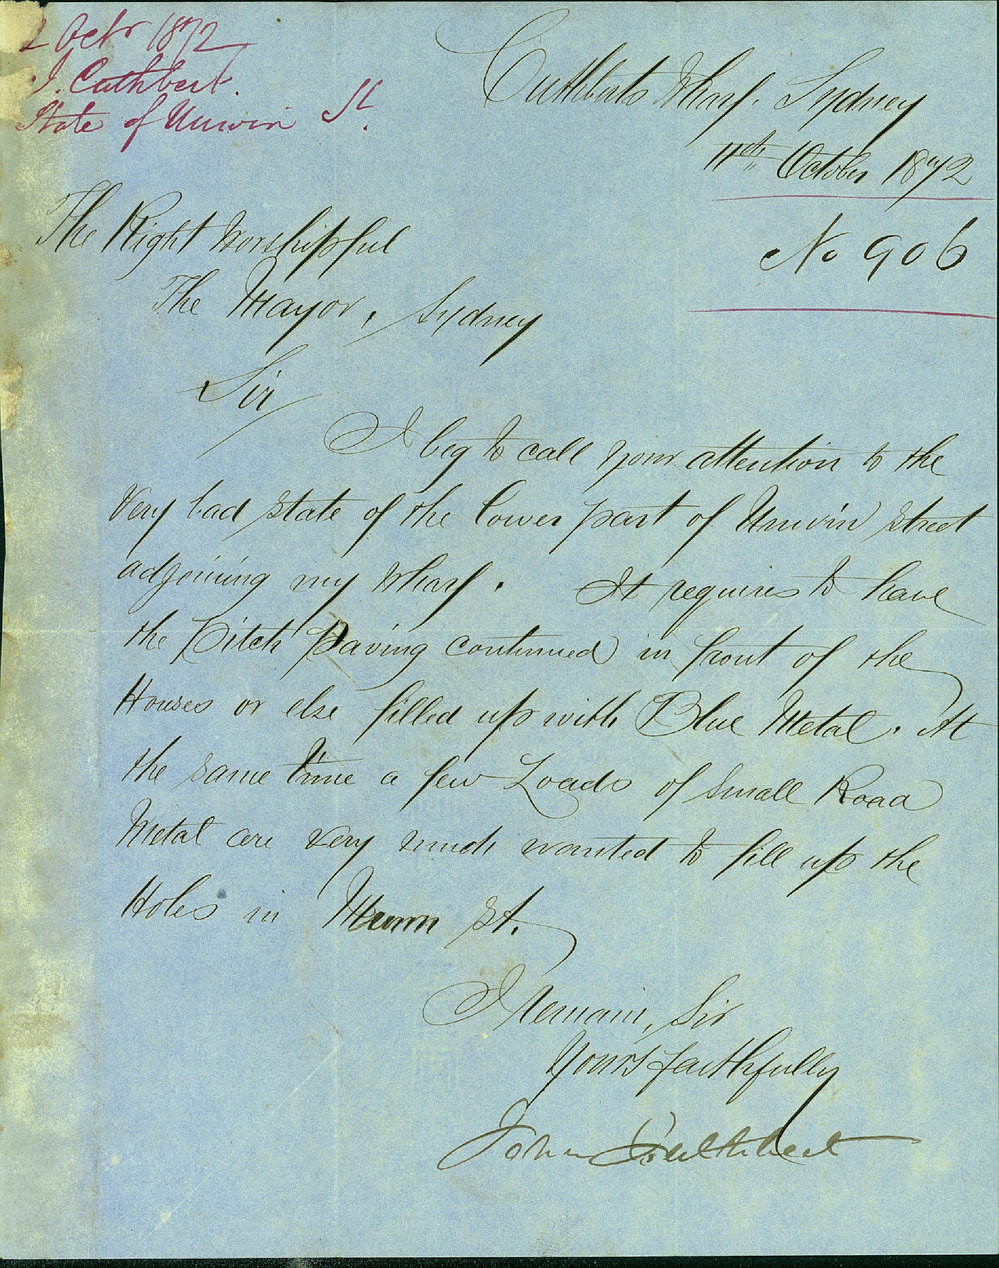 2 Octr 1872
J. Cuthbert.
State of Unwin St.
Cuthberts Wharf. Sydney
11th October 1872
No 906
The Right Worshipful
The Mayor, Sydney
Sir
I beg to call your attention to the
Very bad state of the lower part of Unwin Street
adjoining my Wharf. It requires to have
the Pitch Paving continued in front of the
Houses or else filled up with Blue Metal. At
the same time a few Loads of Small Road
Metal are very much wanted to fill up the
Holes in Munn St.
I Remain, Sir
Yours faithfully
John Cuthbert